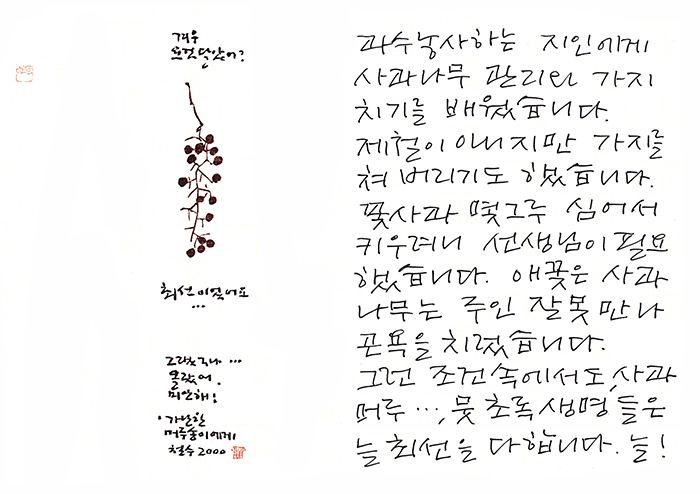 겨우
요것 달았어?
최선이었어요
...
그랬구나...
몰랐어.
미안해!
·가난한
머루송이에게
철수 2000
과수농사하는 지인에게
사과나무 관리와 가지
치기를 배웠습니다.
제철이 아니지만 가지를
쳐 버리기도 했습니다.
꽃사과 몇그루 심어서
키우려니 선생님이 필요
했습니다. 애꿎은 사과
나무는 주인 잘못 만나
곤욕을 치렀습니다.
그런 조건속에서도, 사과
머루..., 뭇 초록 생명들은
늘 최선을 다합니다. 늘!